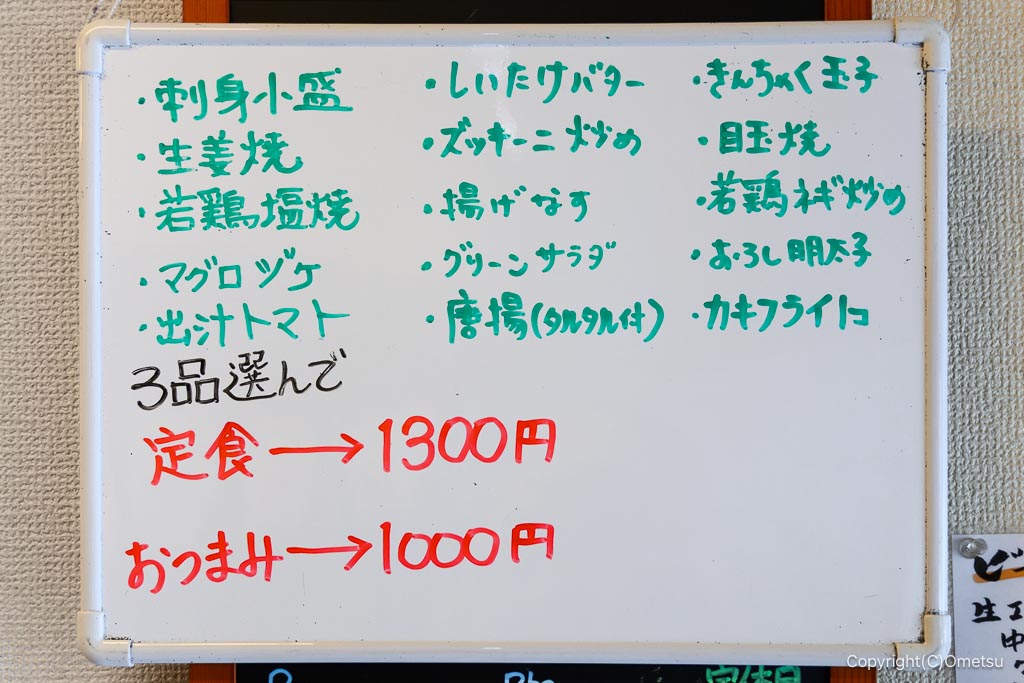 ・刺身小盛
・生姜焼
・若鶏塩焼
・マグロヅケ
・出汁トマト
・しいたけバター
・ズッキーニ炒め
・揚げなす
・グリーンサラダ
・唐揚(タルタル付)
・きんちゃく玉子
・目玉焼
・若鶏ネギ炒め
・おろし明太子
・カキフライ1コ
3品選んで
定食→1300円
おつまみ→1000円
生
中
定休日
Copyright(C)Ometsu